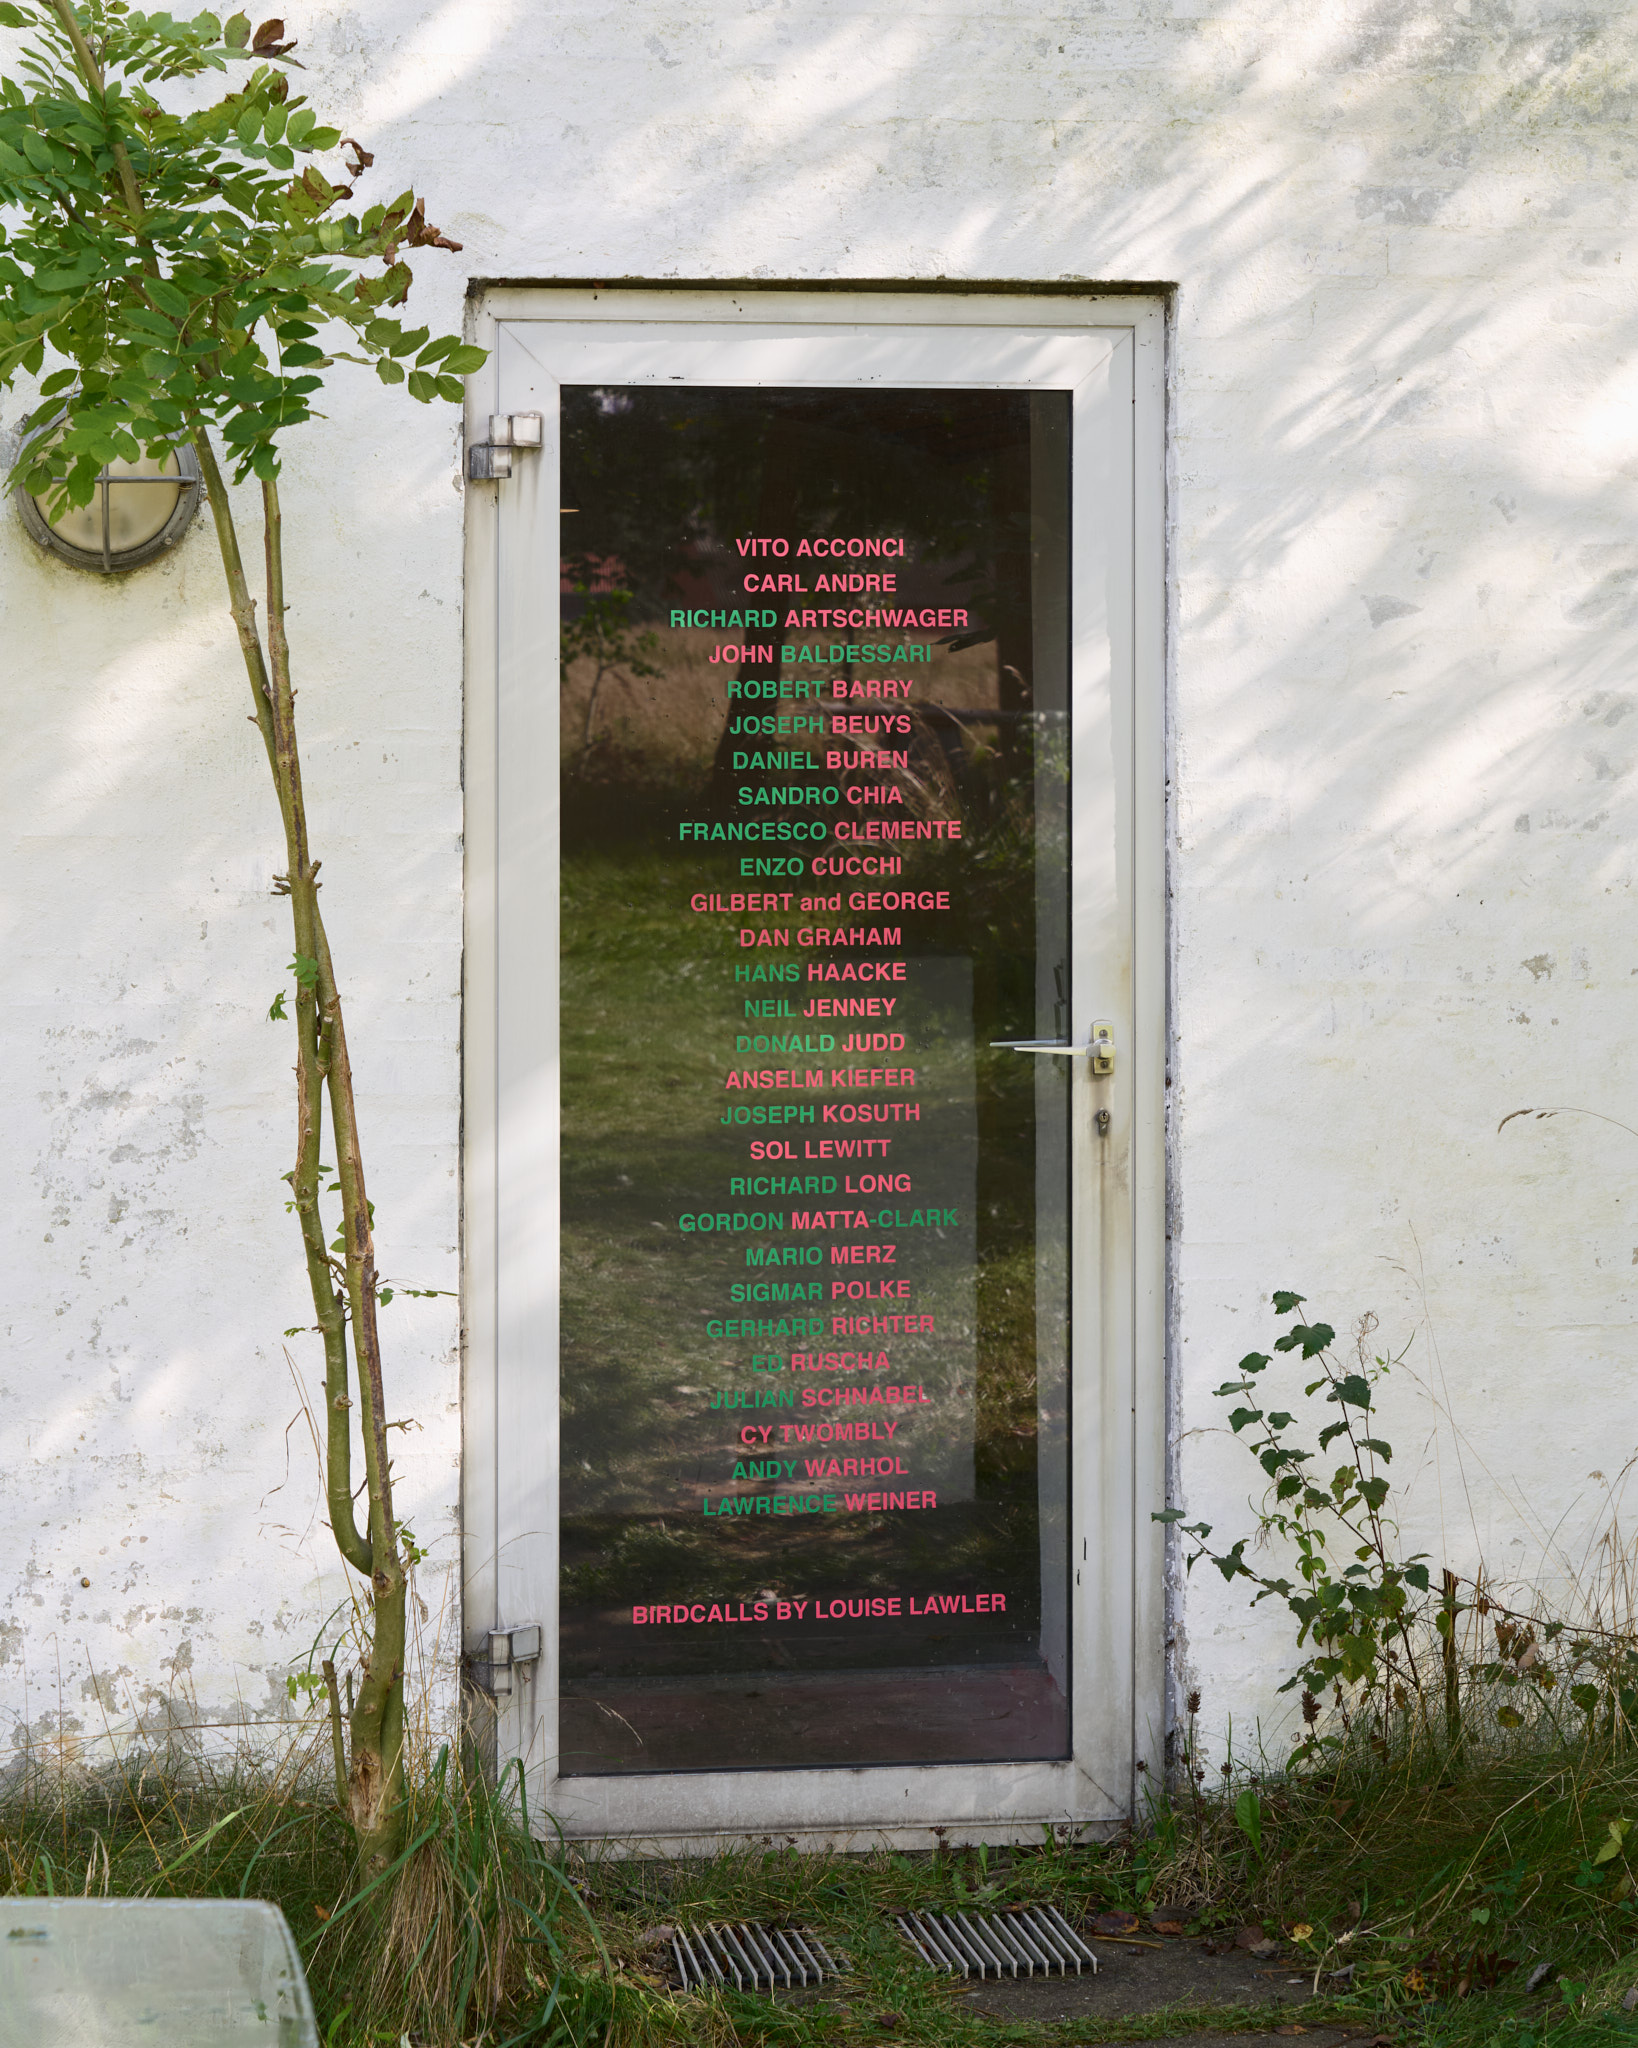 VITO ACCONCI
CARL ANDRE
RICHARD ARTSCHWAGER
JOHN BALDESSARI
ROBERT BARRY
JOSEPH BEUYS
DANIEL BUREN
SANDRO CHIA
FRANCESCO CLEMENTE
ENZO CUCCHI
GILBERT and GEORGE
DAN GRAHAM
HANS HAACKE
NEIL JENNEY
DONALD JUDD
ANSELM KIEFER
JOSEPH KOSUTH
SOL LEWITT
RICHARD LONG
GORDON MATTA-CLARK
MARIO MERZ
SIGMAR POLKE
GERHARD RICHTER
ED RUSCHA
JULIAN SCHNABEL
CY TWOMBLY
ANDY WARHOL
LAWRENCE WEINER
BIRDCALLS BY LOUISE LAWLER